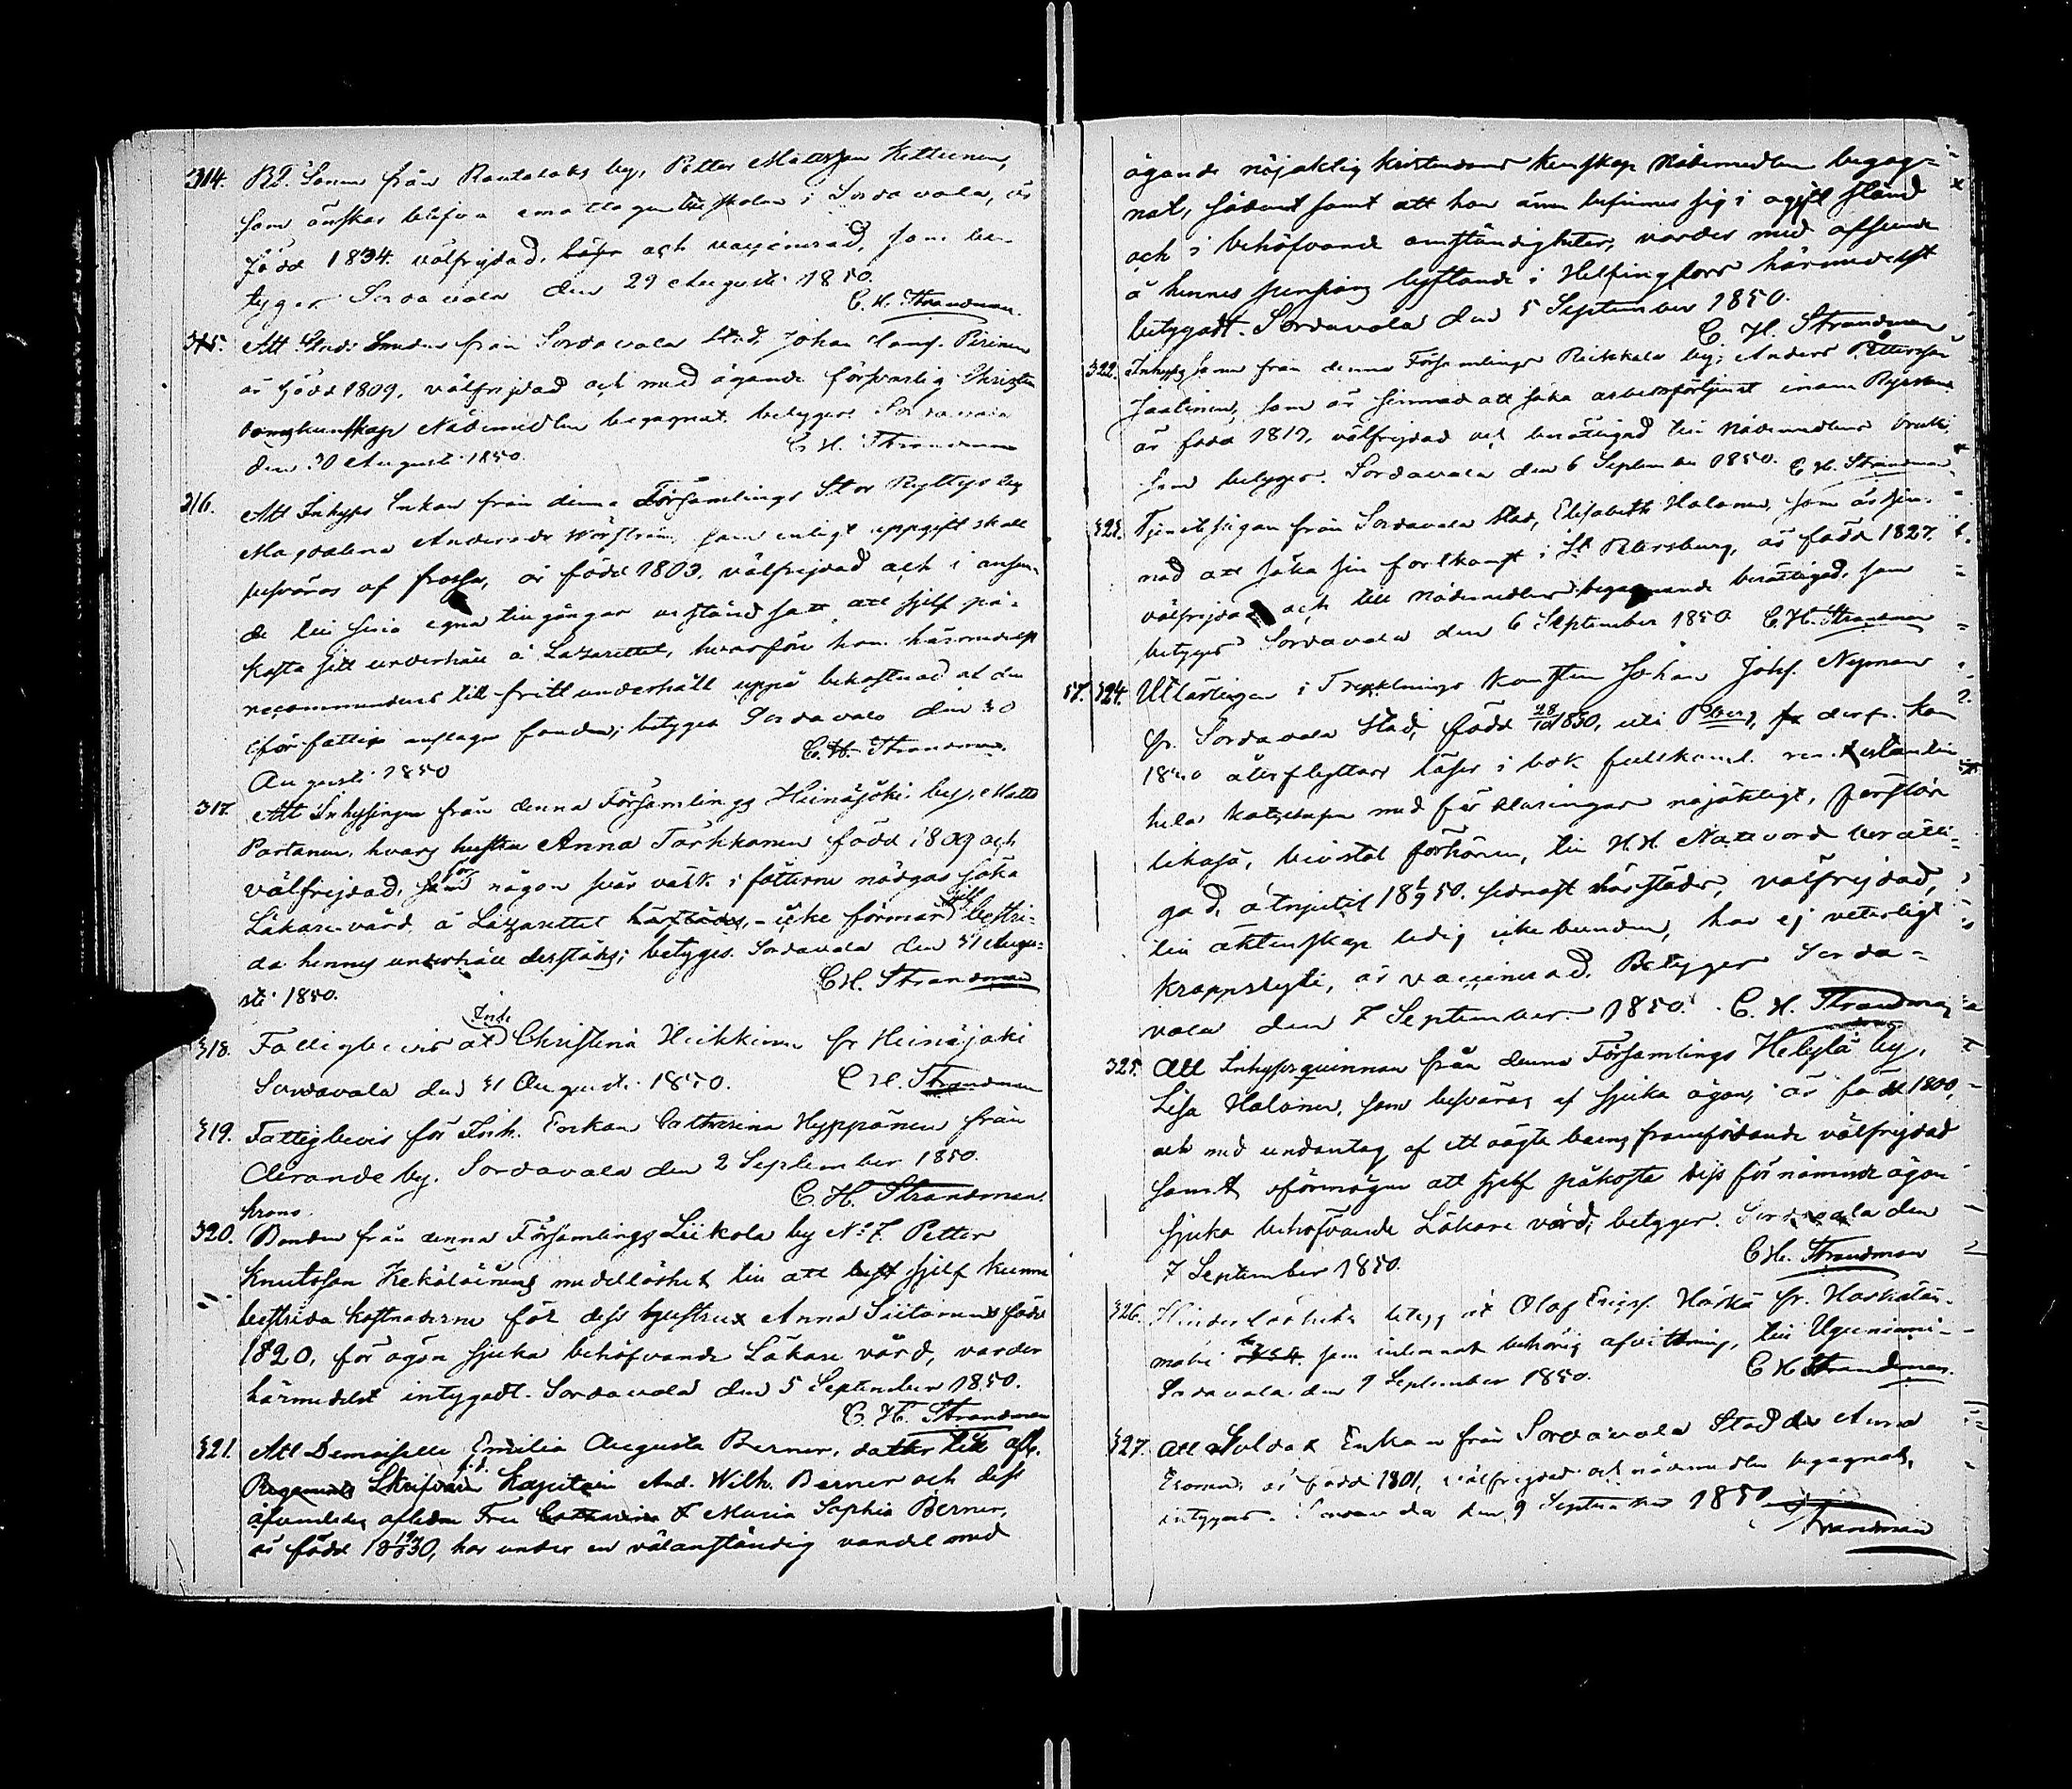 314. Bd. Sonen från Rautalaks by, Petter Mattsson Kettunen,
som önskar blifva emottagen till skolan i Sordavala, är
född 1834. välfrejdad, läser och vaccinerad, som be-
tygar Sordavala den 29 Augusti 1850.
C. H. Strandman.
315. Att Smeden från Sordavala Stad, Johan Pirinen
är född 1809, välfrejdad och med ägande försvarlig Christen-
domskunskap Nådemedlen begagnat, betygas. Sordavala
den 30 Augusti 1850.
C. H. Strandman
316. Att Inhyses Enkan från denna Församlings Stor Ryttys by
Magdalena Andersdr som enligt uppgift skall
besväras af frossa, är född 1803, välfrejdad och i anseen-
de till sina egna tillgångar urståndsatt att sjelf på-
kosta sitt underhåll å Lazarettet, hvarföre hon härmedelst
recommenderas till fritt underhåll uppå bekostnad af den
för fattiga anslagne fonden; betygar Sordavala den 30
Augusti 1850
C. H. Strandman.
317. Att Inhysingen från denna Församlings Heinäjoki by, Matts
Partanen, hvars hustru Anna Tarkkanen född 1809 och
välfrejdad, som för någon svår värk i fötterne nödgas söka
Läkarevård å Lazarettet härstädes, - icke förmår sjelf bestri-
da hennes underhåll derstädes; betygas. Sordavala den 31 Augu-
sti 1850.
C. H. Strandman
318. Fattigbevis åt Inh. Christina Heikkinen fr Heinäjoki
Sordavala den 31 Augusti 1850.
C. H. Strandman
319. Fattigbevis för Inh. Enkan Catharina Hyppönen från
Airanne by. Sordavala den 2 September 1850.
C. H. Strandman.
320. Krono
Bonden från denna Församlings Liikola by No 7 Petter
Knutsson Kekäläinens medellöshet till att sjelf kunna
bestrida kostnaderne för dess hustru Anna Siitonen född
1820, för ögon sjuka behöfvande Läkare vård, varder
härmedelst intygadt. Sordavala den 5 September 1850.
C. H. Strandman
321. Att Demoiselle Emilia Augusta Berner, dotter till afl.
Regements Skrifvaren f.d. Kapitain And. Wilh. Berner och dess
äfvenledes aflidne Fru Catharina Maria Sophia Berner,
är född 18 19/8 30, har under en välanständig vandel med
ägande nöjaktig kristendoms kunskap Nådemedlen begag-
nat, samt att hon ännu befinnes sig i ogift stånd
och i behöfvande omständigheter, varder med afseende
å hennes pensions lyftande i Helsingfors härmedelst
betygadt. Sordavala den 5 September 1850.
C. H. Strandman
322. Inhyses Sonen från denna Församlings Reikkala by, Anders Pettersson
Jaatinen, som är sinnad att söka arbetsförtjenst inom Ryssland
är född 1817, välfrejdad och berättigad till Nådemedlens bruk,
som betygar. Sordavala den 6 September 1850. C. H. Strandman.
323. Tjenstepigan från Sordavala Stad, Elisabeth Halonen, som är sin-
nad att söka sin fortkomst i St Petersburg, är född 1827.
välfrejdad och till Nådemedlens begagnande berättigad, som
betygar Sordavala den 6 September 1850 C. H. Strandman
57. 324. Utlärlingen i Johan Johs. Nyman
fr. Sordavala Stad, född 28/10 1830, uti Pburg, derfr. kom
1840 återflyttare läser i bok fullkoml. ren utantill
hela katechesen med förklaringar nöjaktigt, förstår
likaså, bivistat förhören, till H. H. Nattvard berätti-
gad, åtnjutit 18 1/9 50. sednast härstädes, välfrejdad,
till äktenskap ledig icke bunden, har ej veterligt
kroppslyte, är vaccinerad. Betygar Sorda-
vala den 7 September 1850. C. H. Strandman
325. Att Inhysesqvinnan från denna Församlings Helylä by,
Lisa Halonen, som besväras af sjuka ögon, är född 1800,
och med undantag af ett oägta barns framfödande välfrejdad
samt oförmögen att sjelf påkosta dess förnämnde ögon
sjuka behöfvande Läkare vård; betygar. Sordavala den
7 September 1850.
C. H. Strandman
326. Hinderlöshets betyg åt Olof Ericss. Härkä fr.
mäki som inlemnat behörig afvittring, till Uguniemi-
Sordavala den 9 September 1850.
C H Strandman.
327. Att Soldat Enkan från Sordavala Stad Anna
är född 1801, välfrejdad och nådemedlen begagnat,
intygas. Sordavala den 9 September 1850
Strandman